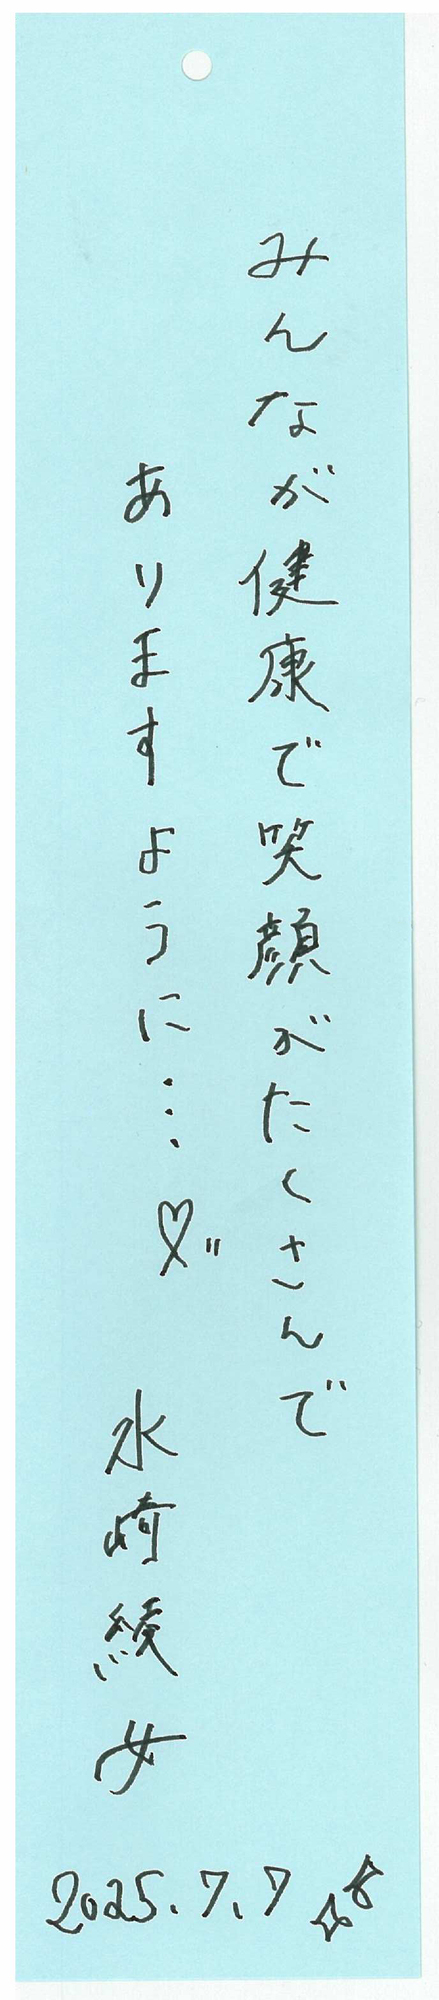 みんなが健康で笑顔がたくさんで
ありますように…♡
水崎綾女
2025.7.7